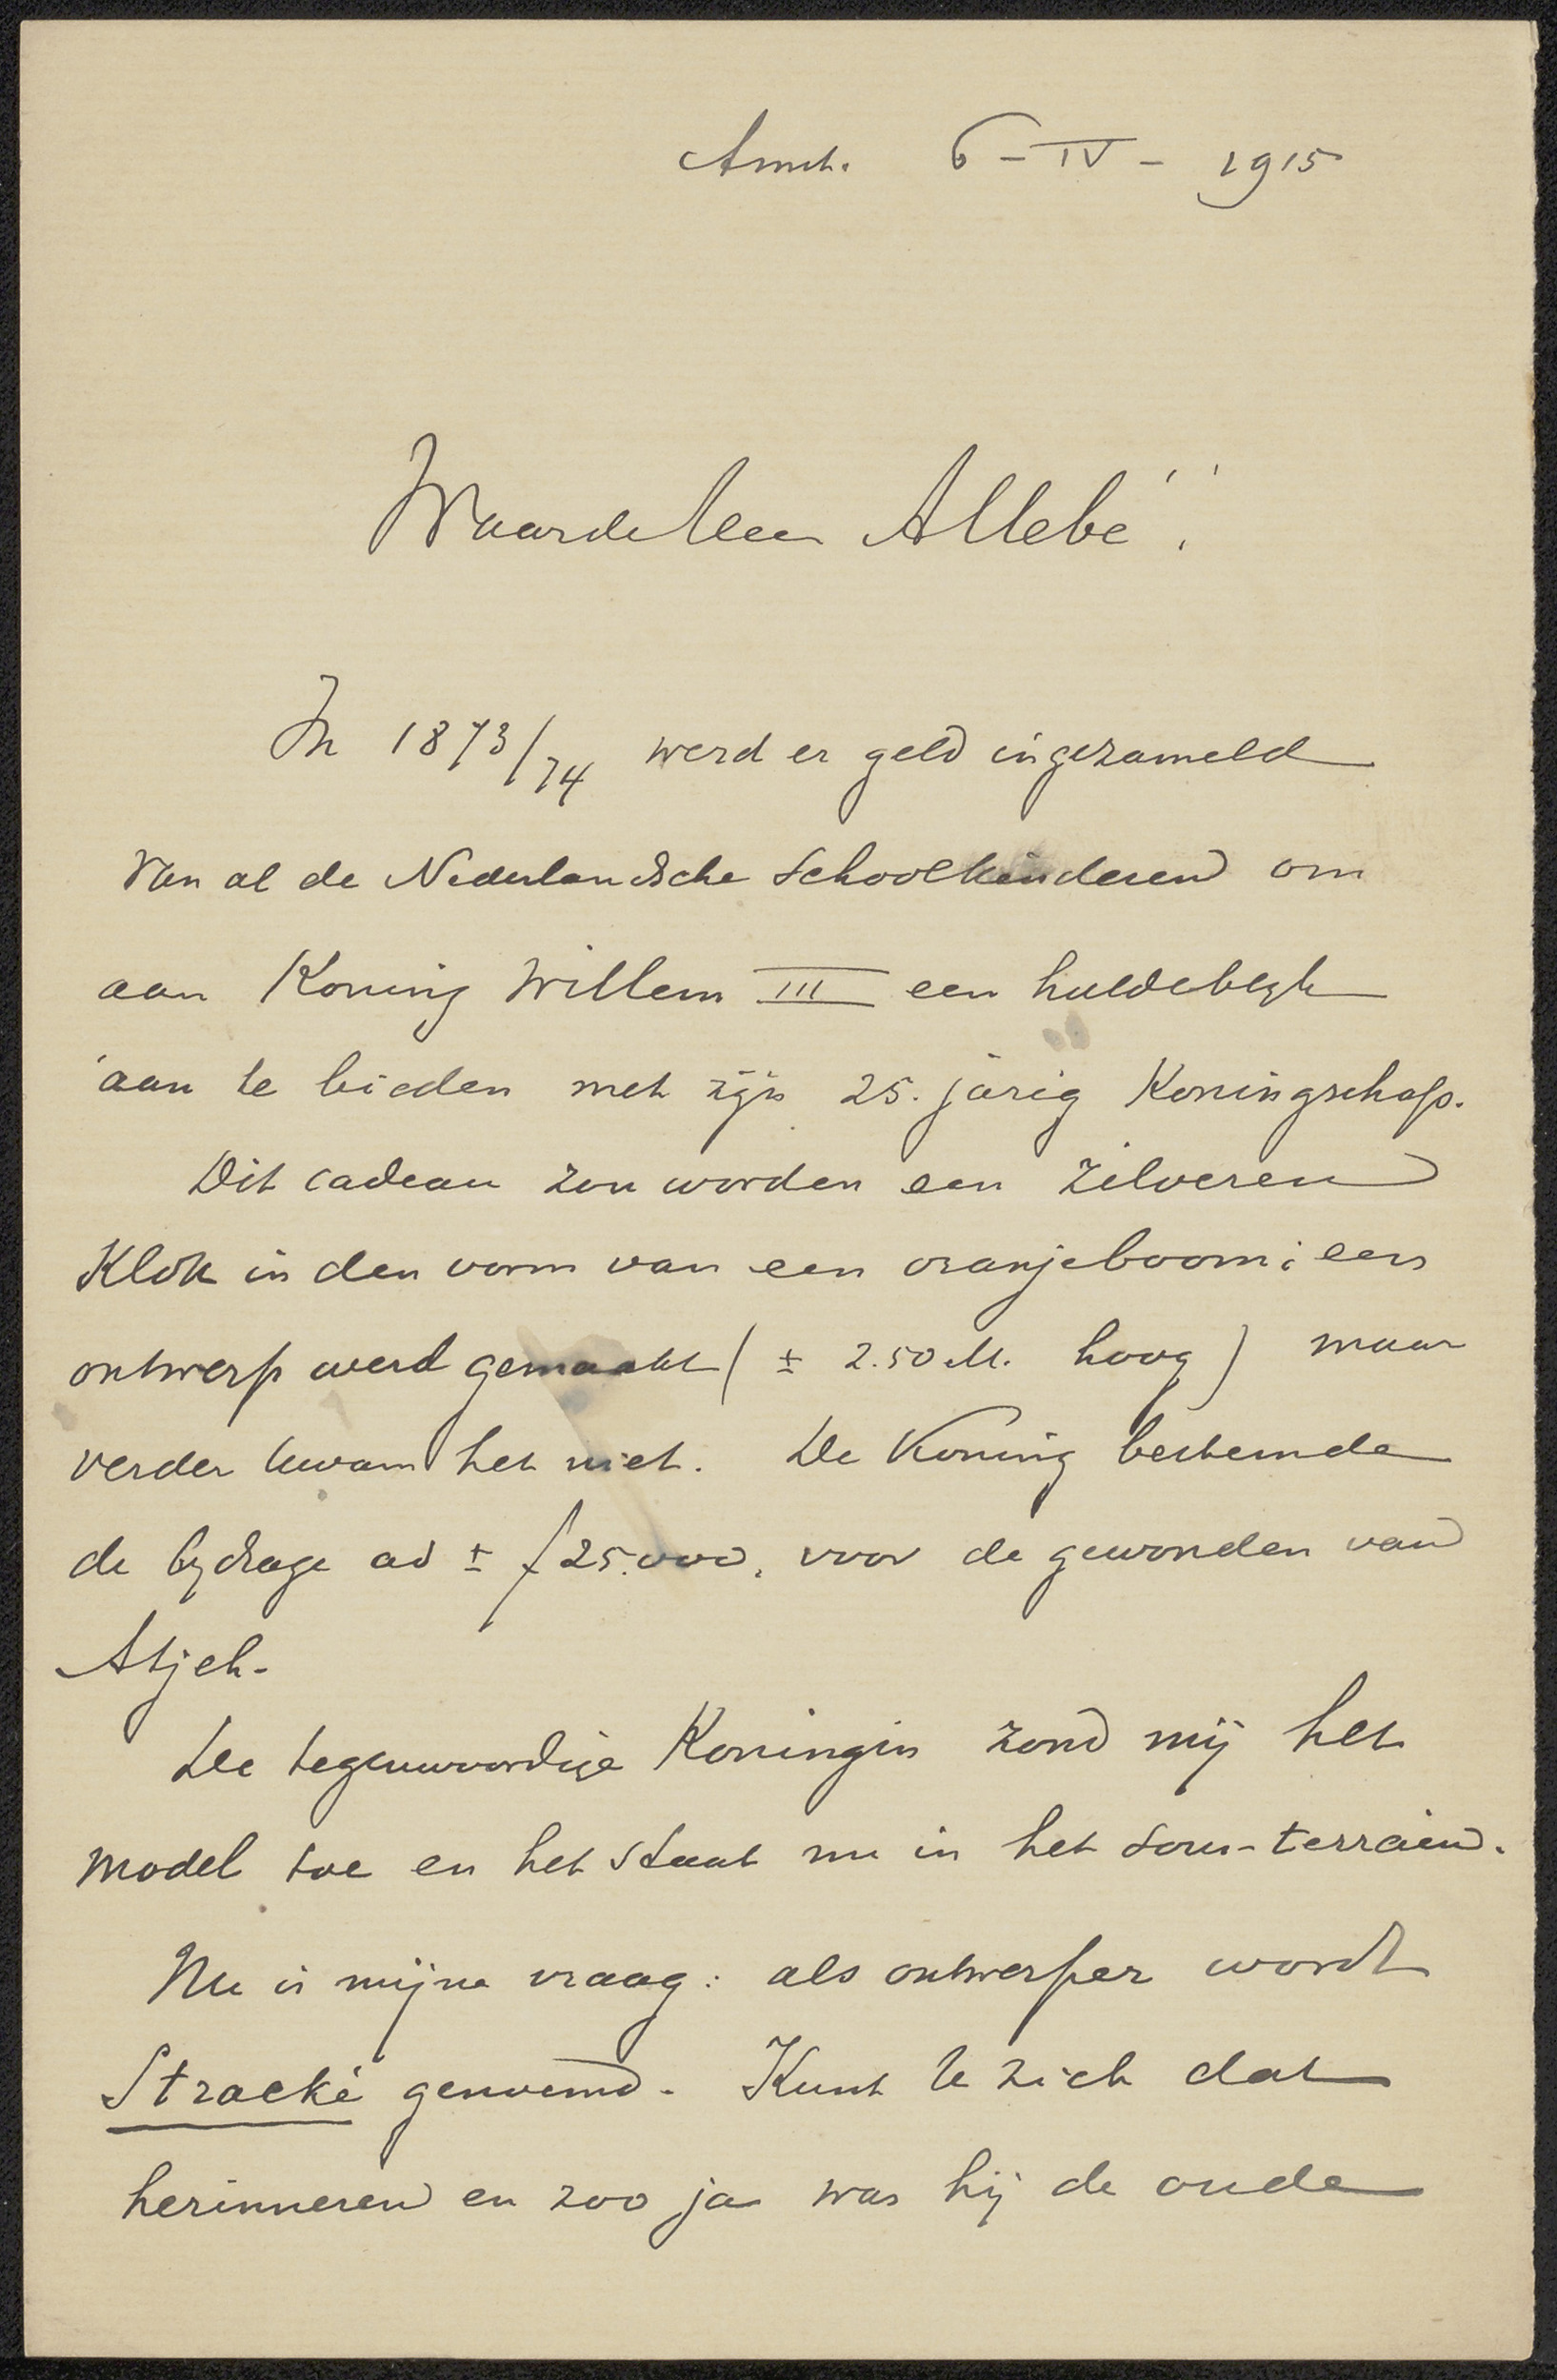 Amst. 6 - IV - 1915
Waarde Heer Allebé!
In 1873/74 werd er geld ingezameld
van al de Nederlandsche Schoolkinderen om
aan Koning Willem III een huldeblijk
aan te bieden met zijn 25.jarig Koningschap.
Dit cadeau zou worden een zilveren
Klok in den vorm van een oranjeboom; een
ontwerp werd gemaakt ( ± 2.50 M. hoog ) maar
verder kwam het niet. De Koning bestemde
de bijdrage ad ± f 25.000, voor de gewonden van
Atjeh.
De tegenwoordige Koningin zond mij het
model toe en het staat nu in het sous-terrain.
Nu is mijne vraag: als ontwerper wordt
Stracké genoemd. Kunt U zich dat
herinneren en zoo ja was hij de oude